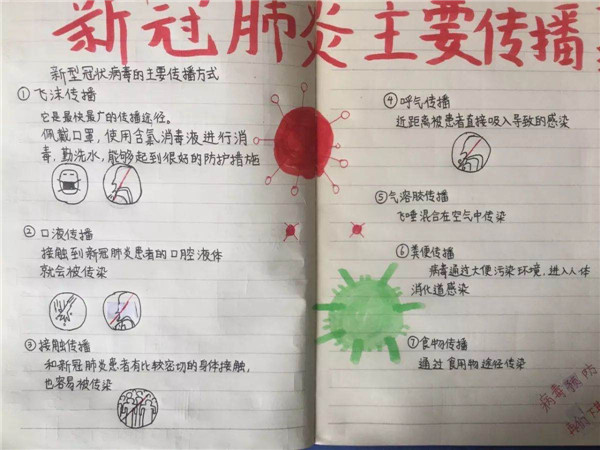 新冠肺炎主要传播
新型冠状病毒的主要传播方式
①飞沫传播
它是最快最广的传播途径。
佩戴口罩，使用含氯消毒液进行消
毒，勤洗水，能够起到很好的防护措施
②口液传播
接触到新冠肺炎患者的口腔液体
就会被传染
③接触传播
和新冠肺炎患者有比较密切的身体接触，
也容易被传染
④呼气传播
近距离被患者直接吸入导致的感染
⑤气溶胶传播
飞唾混合在空气中传染
⑥粪便传播
病毒通过大便污染环境，进入人体
消化道感染
⑦食物传播
通过食用物途径传染
病毒预防